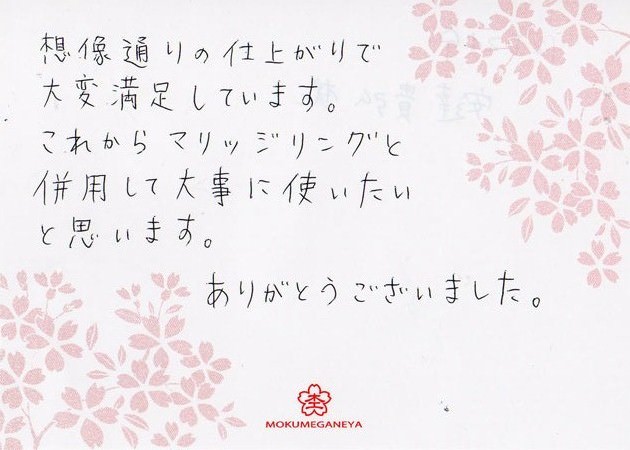 想像通りの仕上がりで
大変満足しています。
これからマリッジリングと
併用して大事に使いたい
と思います。
ありがとうございました。
MOKUMEGANEYA